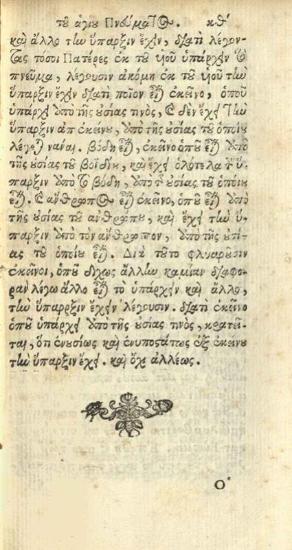 τοῦ ἁγίου Πνεύματος. κθ'
καὶ ἄλλο τὴν ὕπαρξιν ἔχειν, διατὶ λέγον-
τας τόσοι Πατέρες ἐκ τοῦ υἱοῦ ὑπάρχειν τὸ
πνεῦμα, λέγουσιν ἀκόμη ἐκ τοῦ υἱοῦ τὴν
ὕπαρξιν ἔχειν διατὶ ποῖον εἶναι ἐκεῖνο, ὁποῦ
ὑπάρχει ὑπὸ τῆς οὐσίας τινὸς, καὶ δὲν ἔχει τὴν
ὕπαρξιν ἀπ' ἐκείνου, ὑπὸ τῆς οὐσίας τοῦ ὁποίου
λέγεται νὰ εἶναι. βόδι εἶναι, ἐκεῖνο ὁποῦ εἶναι ὑπὸ
τῆς οὐσίας τοῦ βοϊδίου, καὶ ἔχει ὁλότελα τὴν ὕ-
παρξιν ὑπὸ τοῦ βόδι, ὑπὸ τῆς οὐσίας τοῦ ὁποίου
εἶναι. καὶ ἄνθρωπος εἶναι ἐκεῖνο, ὁποῦ εἶναι ὑπὸ
τῆς οὐσίας τοῦ ἀνθρώπου, καὶ ἔχει τὴν ὕ-
παρξιν ὑπὸ τὸν ἄνθρωπον, ὑπὸ τῆς οὐσί-
ας τοῦ ὁποίου εἶναι. Διὰ τοῦτο φλυαροῦσιν
ἐκεῖνοι, ὁποῦ δίχως ἄλλην καμίαν διαφο-
ρὰν λέγω ἄλλο εἶναι τὸ ὑπάρχειν καὶ ἄλλο,
τὴν ὕπαρξιν ἔχειν λέγουσιν. διατὶ ἐκεῖνο
ὁποῦ ὑπάρχει ὑπὸ τῆς οὐσίας τινὸς, κρατεῖ-
ται, ὅτι ἐνυσίως καὶ ἐνυποστάτως ἐξ ἐκείνου
τὴν ὕπαρξιν ἔχει. καὶ ὄχι ἀλλέως.
Ο'